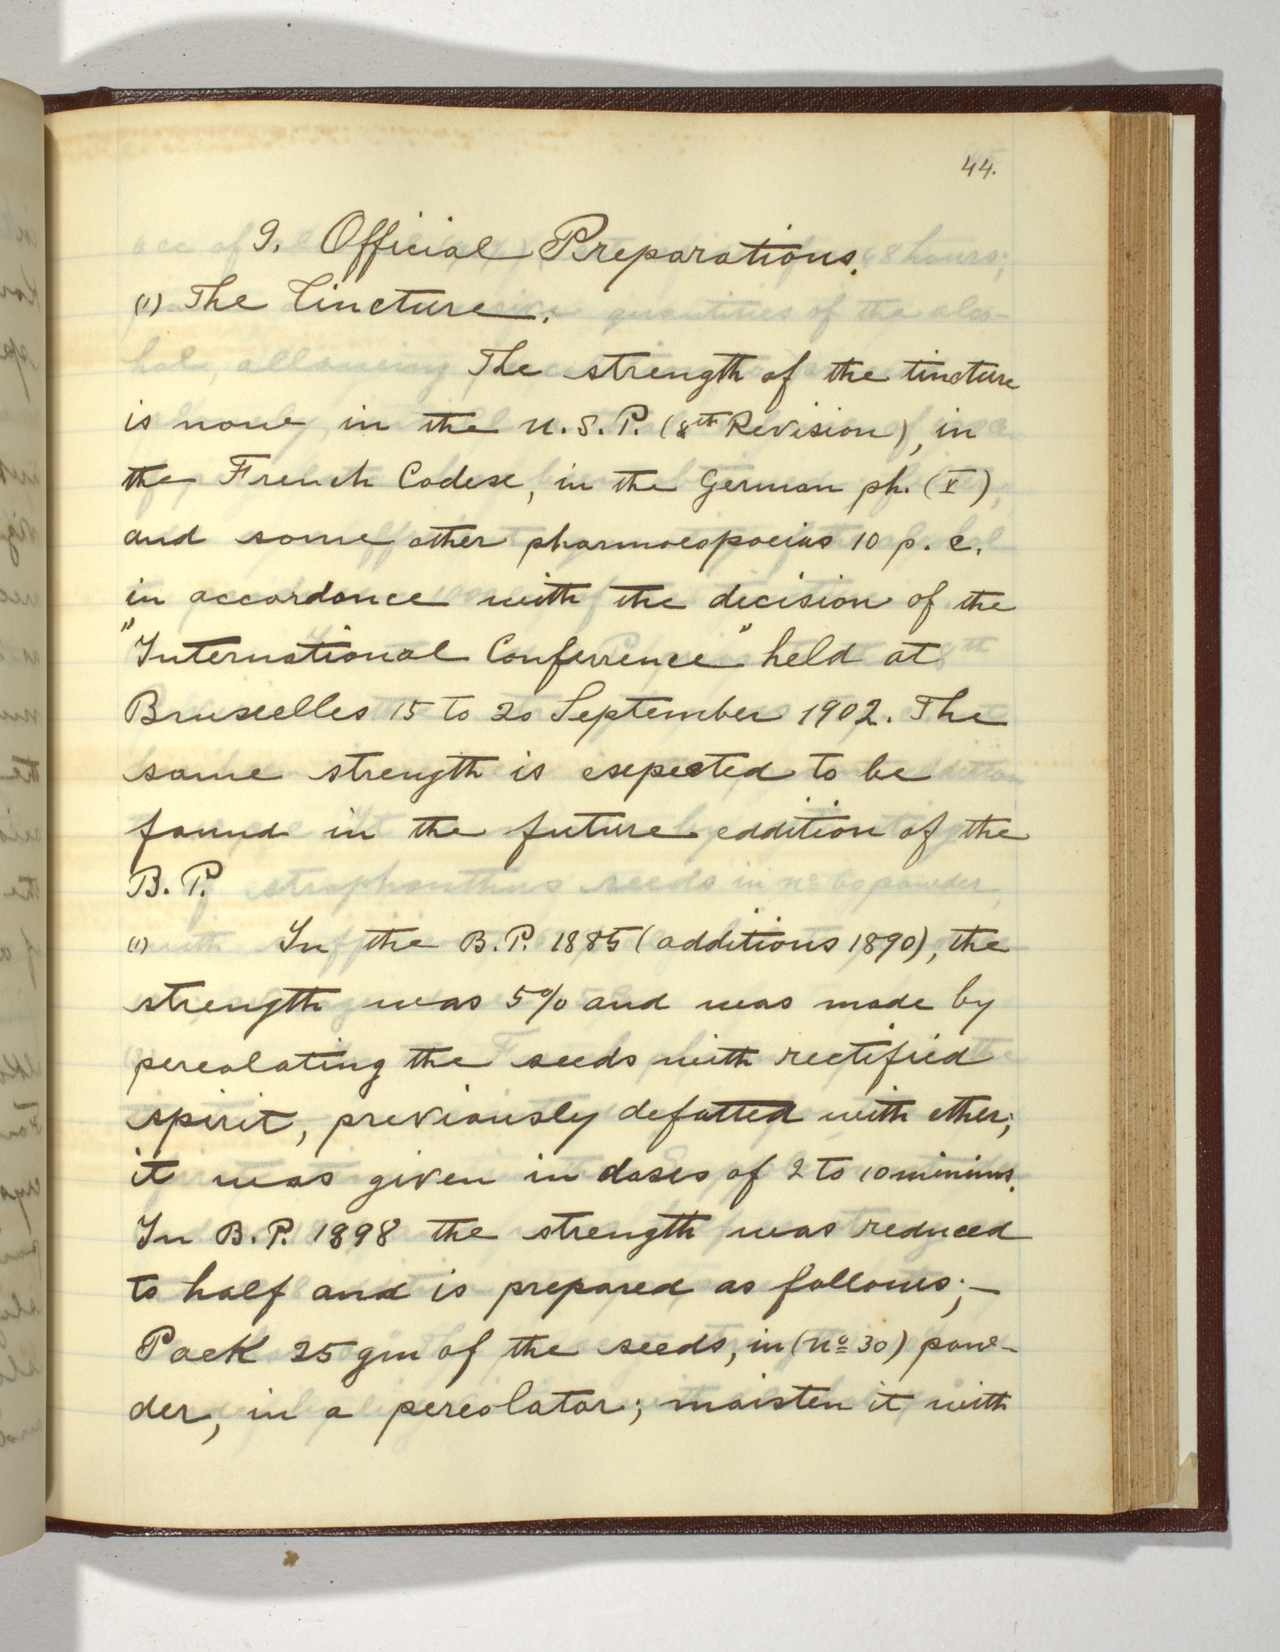 44.
9. Official Preparations.
(1) The Tincture.
The strength of the tincture
is now in the U.S.P. (8th Revision), in
the French Codex, in the German ph. (V),
and some other pharmocopoeias 10 p. c.
in accordance with the decision of the
"International Conferrence" held at
Bruxelles 15 to 20 September 1902. The
same strength is expected to be
found in the future eddition of the
B. P.
(1) In the B.P. 1885 (additions 1890), the
strength was 5% and was made by
percolating the seeds with rectified
spirit, previously defatted with ether;
it was given in doses of 2 to 10 minims.
In B.P. 1898 the strength was reduced
to half and is prepared as follows;—
Pack 25 gm of the seeds, in (No 30) pow-
der, in a percolator; moisten it with